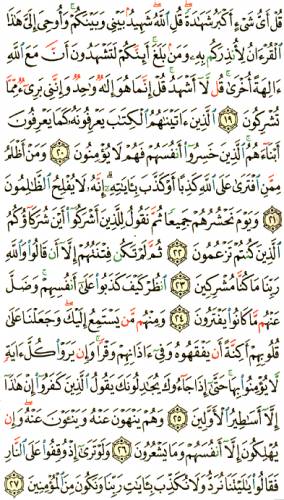 قُلْ أَىُّ شَىْءٍ أَكْبَرُ شَهَٰدَةً قُلِ ٱللَّهُ شَهِيدٌۢ بَيْنِى وَبَيْنَكُمْ وَأُوحِىَ إِلَىَّ هَٰذَا
ٱلْقُرْءَانُ لِأُنذِرَكُم بِهِۦ وَمَنۢ بَلَغَ أَئِنَّكُمْ لَتَشْهَدُونَ أَنَّ مَعَ ٱللَّهِ
ءَالِهَةً أُخْرَىٰ قُل لَّآ أَشْهَدُ قُلْ إِنَّمَا هُوَ إِلَٰهٌ وَٰحِدٌ وَإِنَّنِى بَرِىٓءٌ مِّمَّا
تُشْرِكُونَ ١٩ ٱلَّذِينَ ءَاتَيْنَٰهُمُ ٱلْكِتَٰبَ يَعْرِفُونَهُۥ كَمَا يَعْرِفُونَ
أَبْنَآءَهُمُ ٱلَّذِينَ خَسِرُوٓا۟ أَنفُسَهُمْ فَهُمْ لَا يُؤْمِنُونَ ٢٠ وَمَنْ أَظْلَمُ
مِمَّنِ ٱفْتَرَىٰ عَلَى ٱللَّهِ كَذِبًا أَوْ كَذَّبَ بِـَٔايَٰتِهِۦٓ إِنَّهُۥ لَا يُفْلِحُ ٱلظَّٰلِمُونَ
٢١ وَيَوْمَ نَحْشُرُهُمْ جَمِيعًا ثُمَّ نَقُولُ لِلَّذِينَ أَشْرَكُوٓا۟ أَيْنَ شُرَكَآؤُكُمُ
ٱلَّذِينَ كُنتُمْ تَزْعُمُونَ ٢٢ ثُمَّ لَمْ تَكُن فِتْنَتُهُمْ إِلَّآ أَن قَالُوا۟ وَٱللَّهِ
رَبِّنَا مَا كُنَّا مُشْرِكِينَ ٢٣ ٱنظُرْ كَيْفَ كَذَبُوا۟ عَلَىٰٓ أَنفُسِهِمْ وَضَلَّ
عَنْهُم مَّا كَانُوا۟ يَفْتَرُونَ ٢٤ وَمِنْهُم مَّن يَسْتَمِعُ إِلَيْكَ وَجَعَلْنَا عَلَىٰ
قُلُوبِهِمْ أَكِنَّةً أَن يَفْقَهُوهُ وَفِىٓ ءَاذَانِهِمْ وَقْرًا وَإِن يَرَوْا۟ كُلَّ ءَايَةٍ
لَّا يُؤْمِنُوا۟ بِهَا حَتَّىٰٓ إِذَا جَآءُوكَ يُجَٰدِلُونَكَ يَقُولُ ٱلَّذِينَ كَفَرُوٓا۟ إِنْ هَٰذَآ
إِلَّآ أَسَٰطِيرُ ٱلْأَوَّلِينَ ٢٥ وَهُمْ يَنْهَوْنَ عَنْهُ وَيَنْـَٔوْنَ عَنْهُ وَإِن
يُهْلِكُونَ إِلَّآ أَنفُسَهُمْ وَمَا يَشْعُرُونَ ٢٦ وَلَوْ تَرَىٰٓ إِذْ وُقِفُوا۟ عَلَى ٱلنَّارِ
فَقَالُوا۟ يَٰلَيْتَنَا نُرَدُّ وَلَا نُكَذِّبَ بِـَٔايَٰتِ رَبِّنَا وَنَكُونَ مِنَ ٱلْمُؤْمِنِينَ ٢٧